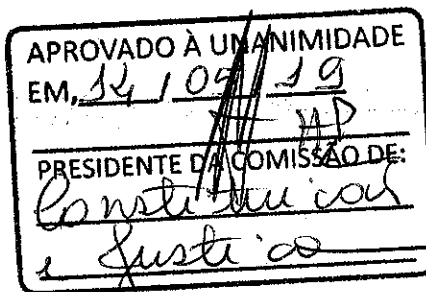 APROVADO À UNANIMIDADE
EM, 14 / 05 / 19
PRESIDENTE DA COMISSÃO DE:
Constituicao
e Justica